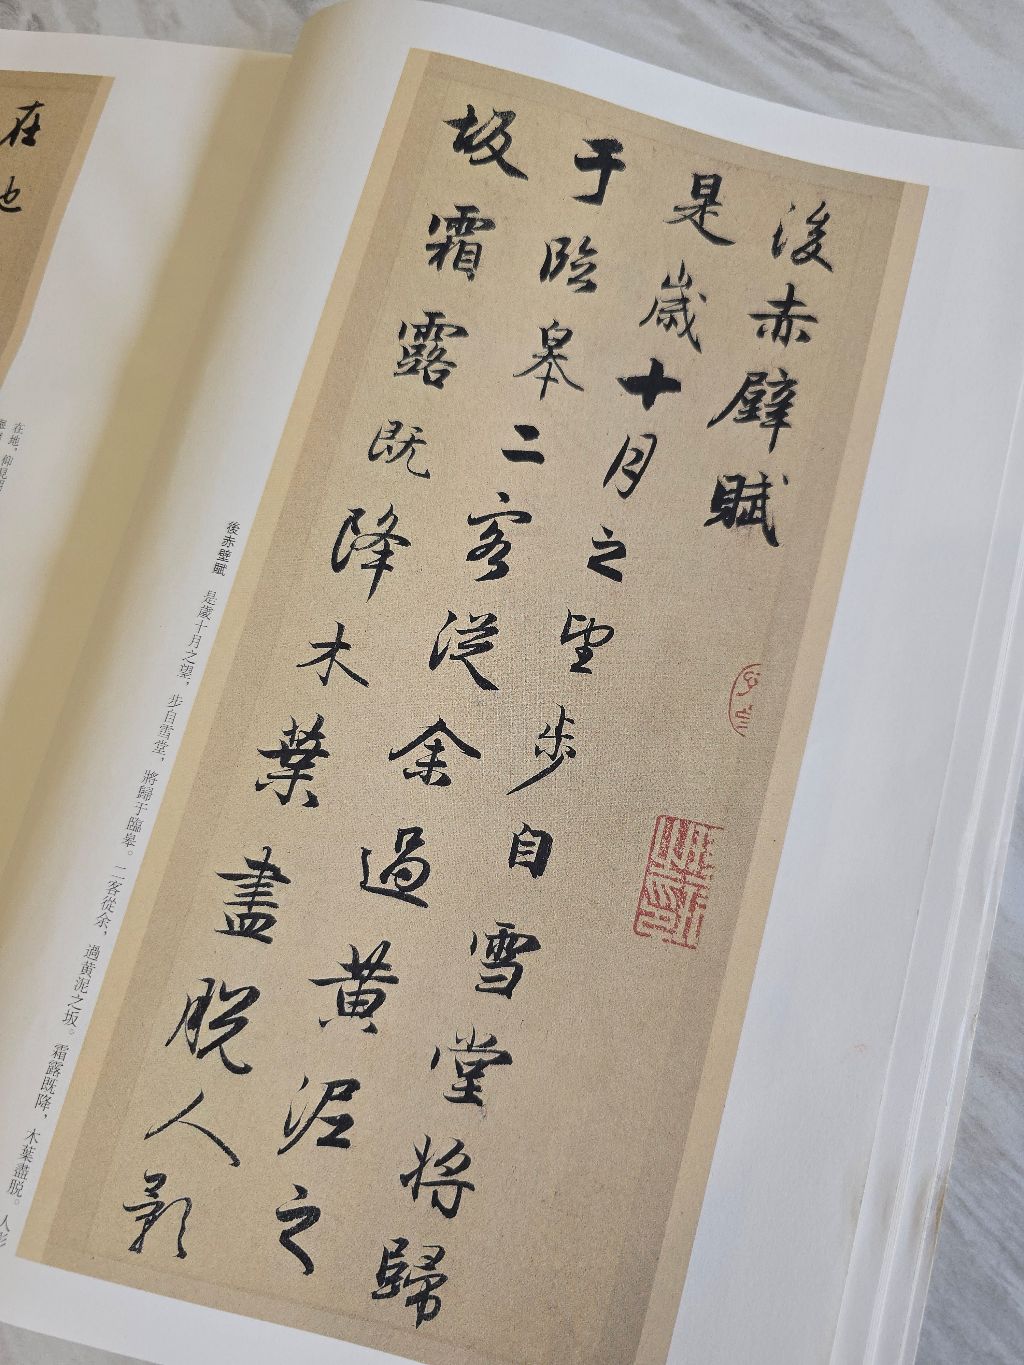 後赤壁賦
是歲十月之望步自雪堂將歸
于臨皋二客從余過黃泥之
坂霜露既降木葉盡脫人影
後赤壁賦 是歲十月之望，步自雪堂，將歸于臨皋。二客從余，過黃泥之坂。霜露既降，木葉盡脫。人影
在也
在地，仰見明